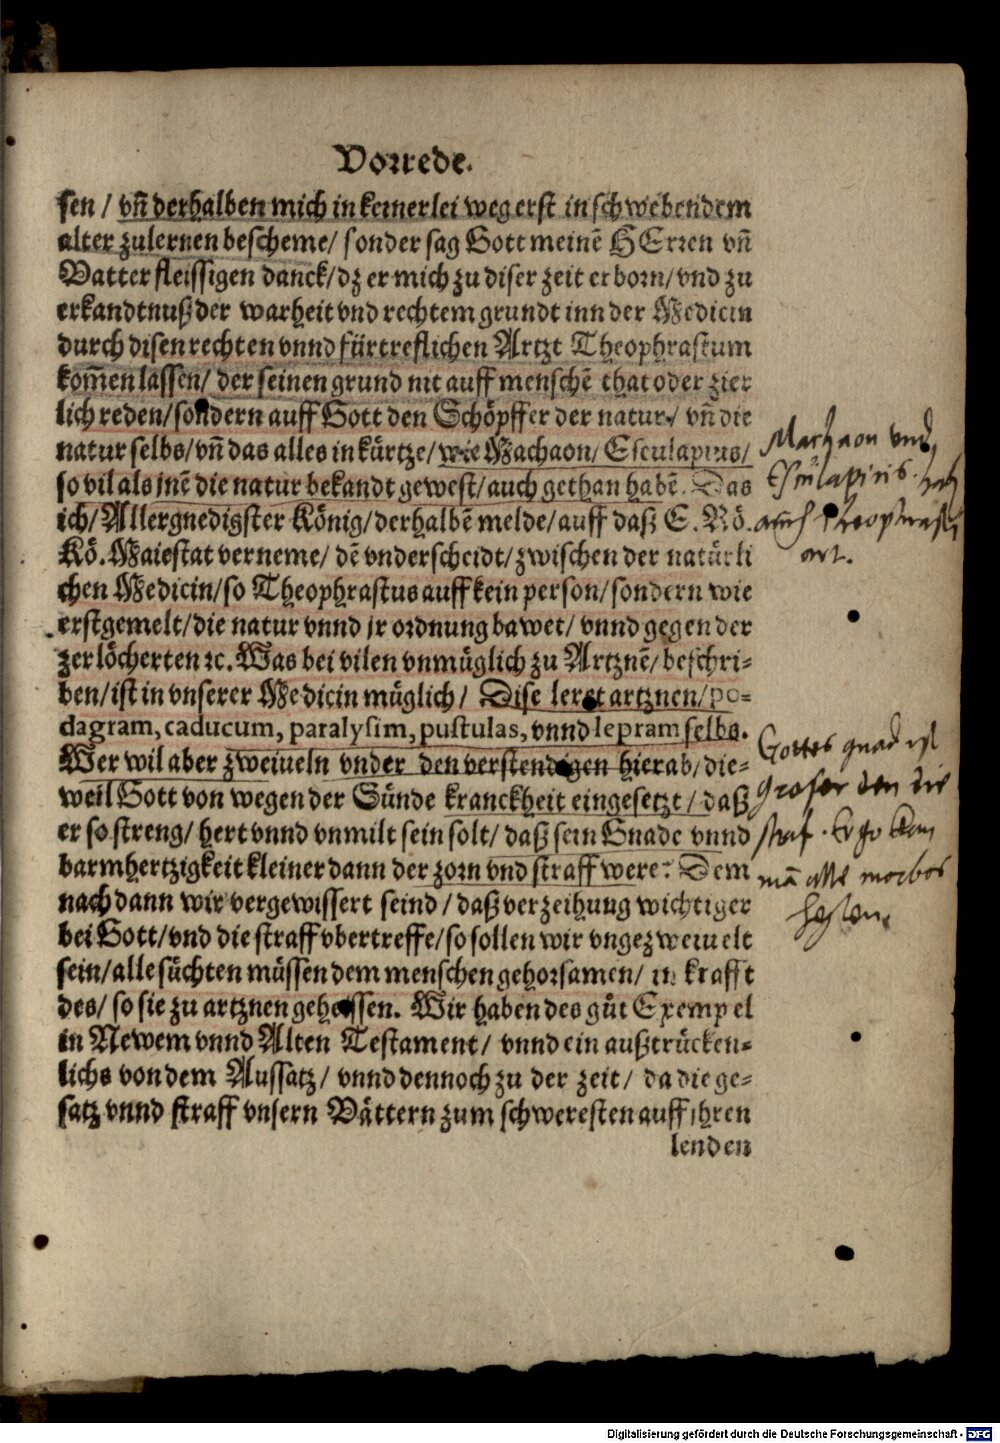 Vorrede.
sen / vñ derhalben mich in keinerlei weg erst in schwebendem
alter zulernen bescheme / sonder sag Gott meinē HErren vñ
Vatter fleissigen danck / dz er mich zu diser zeit erborn / vnd zu
erkandtnuß der warheit vnd rechtem grundt inn der Medicin
durch disen rechten vnnd fürtreflichen Artzt Theophrastum
kom̃en lassen / der seinen grund nit auff menschē that oder zier
lich reden / sondern auff Gott den Schöpffer der natur / vñ die
natur selbs / vñ das alles in kürtze / wie Machaon / Esculapius /
so vil als jnē die natur bekandt gewest / auch gethan habē. Das
ich / Allergnedigster König / derhalbē melde / auff daß E. Rö.
Kö. Maiestat verneme / dē vnderscheidt / zwischen der natürli
chen Medicin / so Theophrastus auff kein person / sondern wie
erstgemelt / die natur vnnd jr ordnung bawet / vnnd gegen der
zerlöcherten ꝛc. Was bei vilen vnmüglich zu Artznē / beschri-
ben / ist in vnserer Medicin müglich / Dise leret artznen / po-
dagram, caducum, paralysim, pustulas, vnnd lepram selbs.
Wer wil aber zweiueln vnder den verstendigen hierab / die-
weil Gott von wegen der Sünde kranckheit eingesetzt / daß
er so streng / hert vnnd vnmilt sein solt / daß sein Gnade vnnd
barmhertzigkeit kleiner dann der zorn vnd straff were? Dem
nach dann wir vergewissert seind / daß verzeihung wichtiger
bei Gott / vnd die straff vbertreffe / so sollen wir vngezweiuelt
sein / alle süchten müssen dem menschen gehorsamen / in krafft
des / so sie zu artznen geheissen. Wir haben des gůt Exempel
in Newem vnnd Alten Testament / vnnd ein außtrücken-
lichs von dem Aussatz / vnnd dennoch zu der zeit / da die ge-
satz vnnd straff vnsern Vättern zum schweresten auff ihren
lenden
Machaon vnd
Esculapius
auch Theophrasti
art.
Gottes gnad ist
groser den die
straf. Ergo kan
mā alle morbos
heylen.
Digitalisierung gefördert durch die Deutsche Forschungsgemeinschaft - DFG